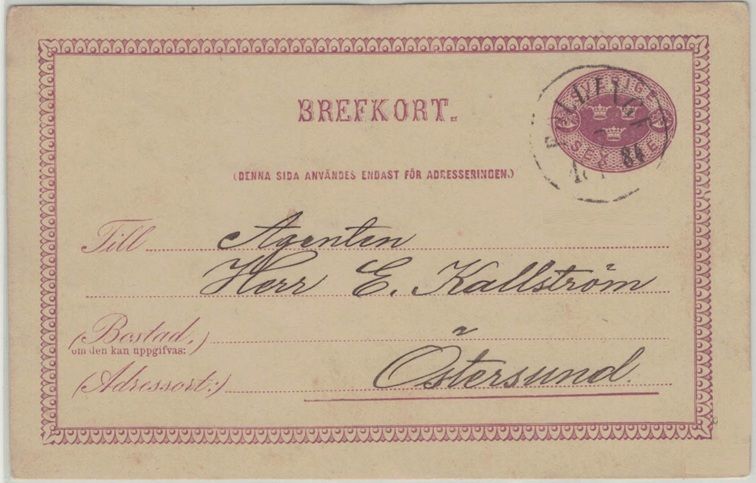 BREFKORT.
SVERIGE
SEX ÖRE
84
(DENNA SIDA ANVÄNDES ENDAST FÖR ADRESSERINGEN.)
Till Agenten
Herr E. Kallström
(Bostad,
om den kan uppgifvas:
(Adressort:) Östersund.